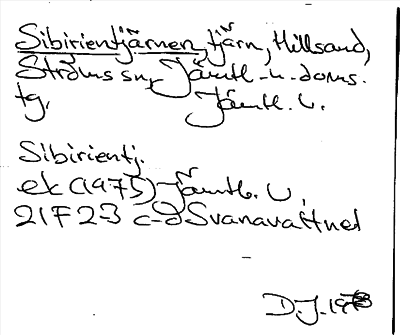 Sibirientjärnen, tjärn, Hillsand,
Ströms sn, Jämtl. n. doms.
tg. Jämtl. l.
Sibirientj.
ek (1975) Jämtl. l,
21F 2-3 c-d Svanavattnet
D.J. 1978